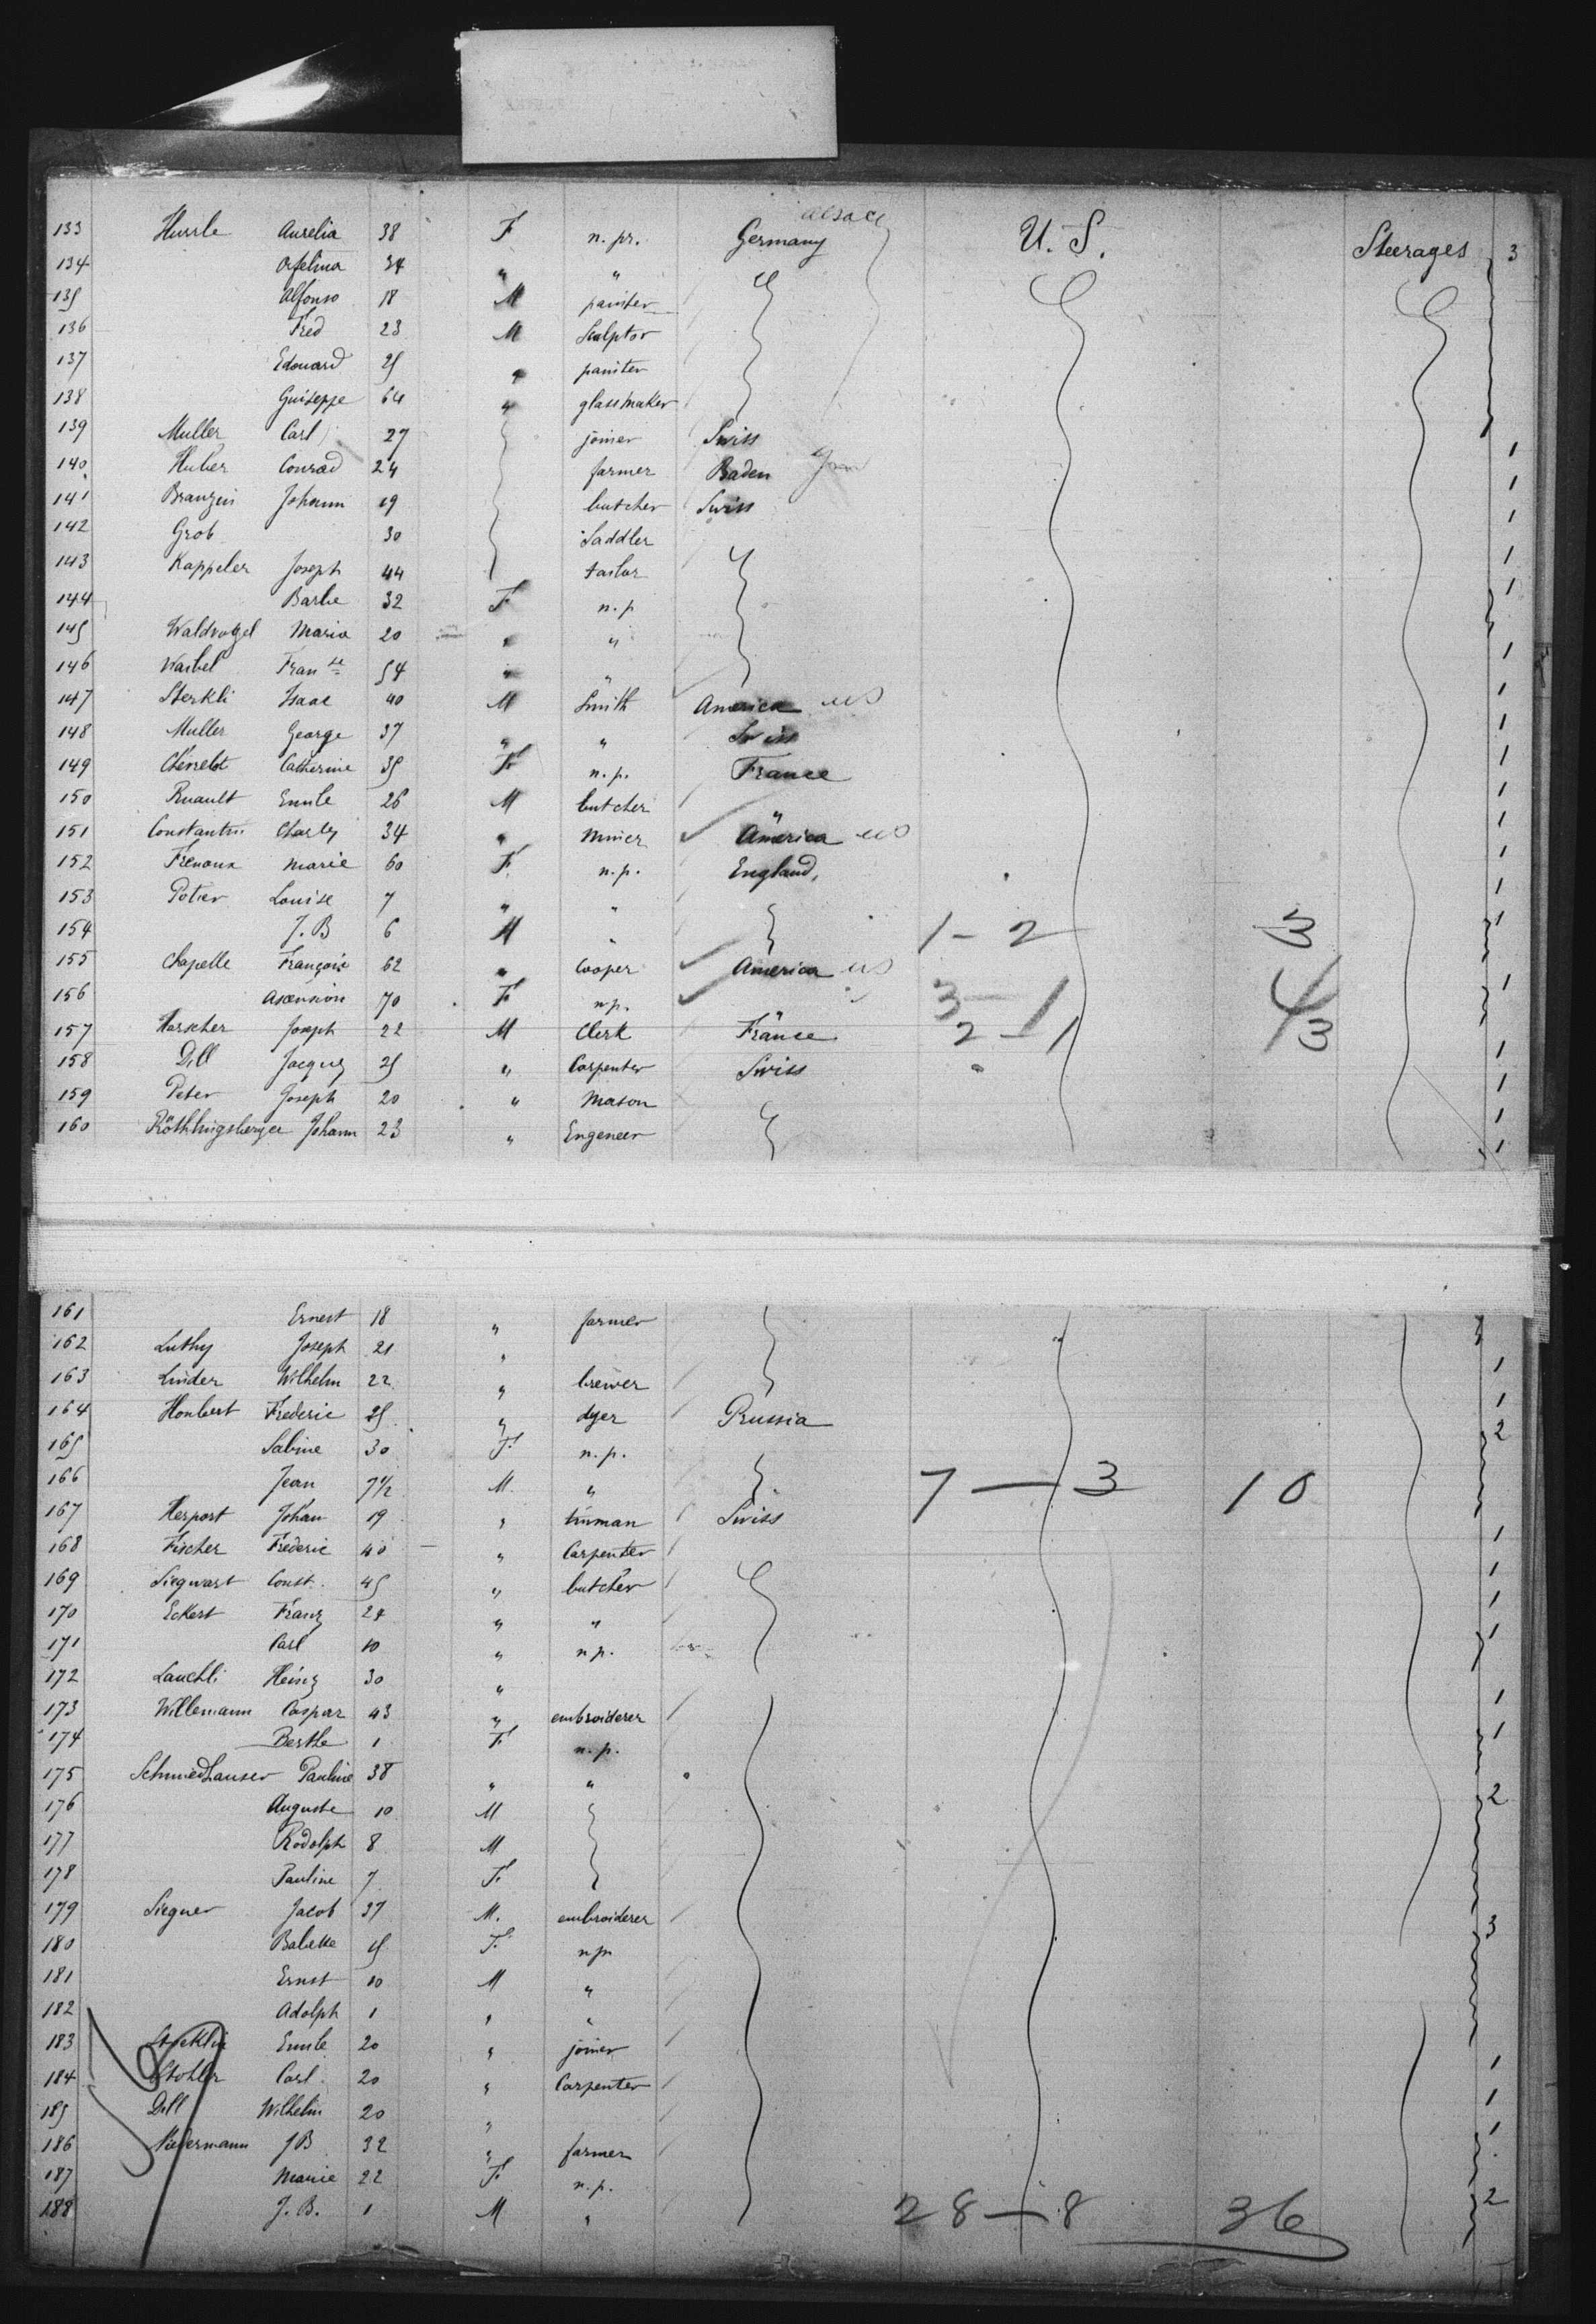 Alsace
133 Hurrle Aurelia 38 F n. pr. Germany U. S. Steerages 3
134 Orfelina 34 " "
135 Alfonso 18 M painter
136 Fred 23 M Sculptor
137 Edouard 25 " painter
138 Guiseppe 64 " glassmaker
139 Muller Carl 27 joiner Swiss
140 Huber Conrad 24 farmer Baden 1
141 Johann 19 butcher Swiss 1
142 Grob 30 Saddler 1
143 Kappeler Joseph 44 tailor 1
144 Barbe 32 F n. p 1
145 Waldvogel Maria 20 " "
146 Waibel Fran se 54 " " 1
147 Sterkli Isaac 40 M Smith America US 1
148 Muller George 37 " " Swiss 1
149 Catherine 35 F n. p. France 1
150 Ruault Emile 26 M butcher " 1
151 Constantin Charles 34 " Miner America US 1
152 Marie 60 F. n. p. England, 1
153 Potier Louise 7 " " 1
154 J. B 6 M " 1 - 2 3 1
155 Chapelle François 62 " Cooper America US
156 Ascension 70 F n.p. " 3 - 1 4 1
157 Harscher Joseph 22 M Clerk France 2 - 1 3
158 Dill Jacques 25 " Carpenter Swiss 1
159 Peter Joseph 20 " Mason 1
160 Röthlingsberger Johann 23 " Engeneer 1
1
161 Ernest 18 " farmer
162 Luthy Joseph 21 "
163 Linder Wilhelm 22 " brewer 1
164 Houbert Frederic 25 " dyer Prussia 1
165 Sabine 30 F. n. p. 2
166 Jean 7½ M. " 7 — 3 10
167 Herport Johan 19 " tinman Swiss
168 Fischer Frederic 40 " Carpenter 1
169 Siegwart Const. 45 " butcher 1
170 Eckert Franz 24 " " 1
171 Carl 10 " n p. 1
172 Lauchli Heinz 30 "
173 Willemann Caspar 43 " embroiderer 1
174 Berthe 1 F. n. p. 1
175 Schmiedhauser Pauline 38 " "
176 Auguste 10 M 2
177 Rodolph 8 M
178 Pauline 7 F.
179 Siegner Jacob 37 M. embroiderer
180 Babette 45 F. n.p. 3
181 Ernst 10 M "
182 Adolph 1 " "
183 Stocklin Emile 20 " joiner
184 Stohler Carl 20 " Carpenter 1
185 Dill Wilhelm 20 " 1
186 Niedermann JB 32 " farmer 1
187 Marie 22 F. n. p.
188 J. B. 1 M " 28 — 8 36 2